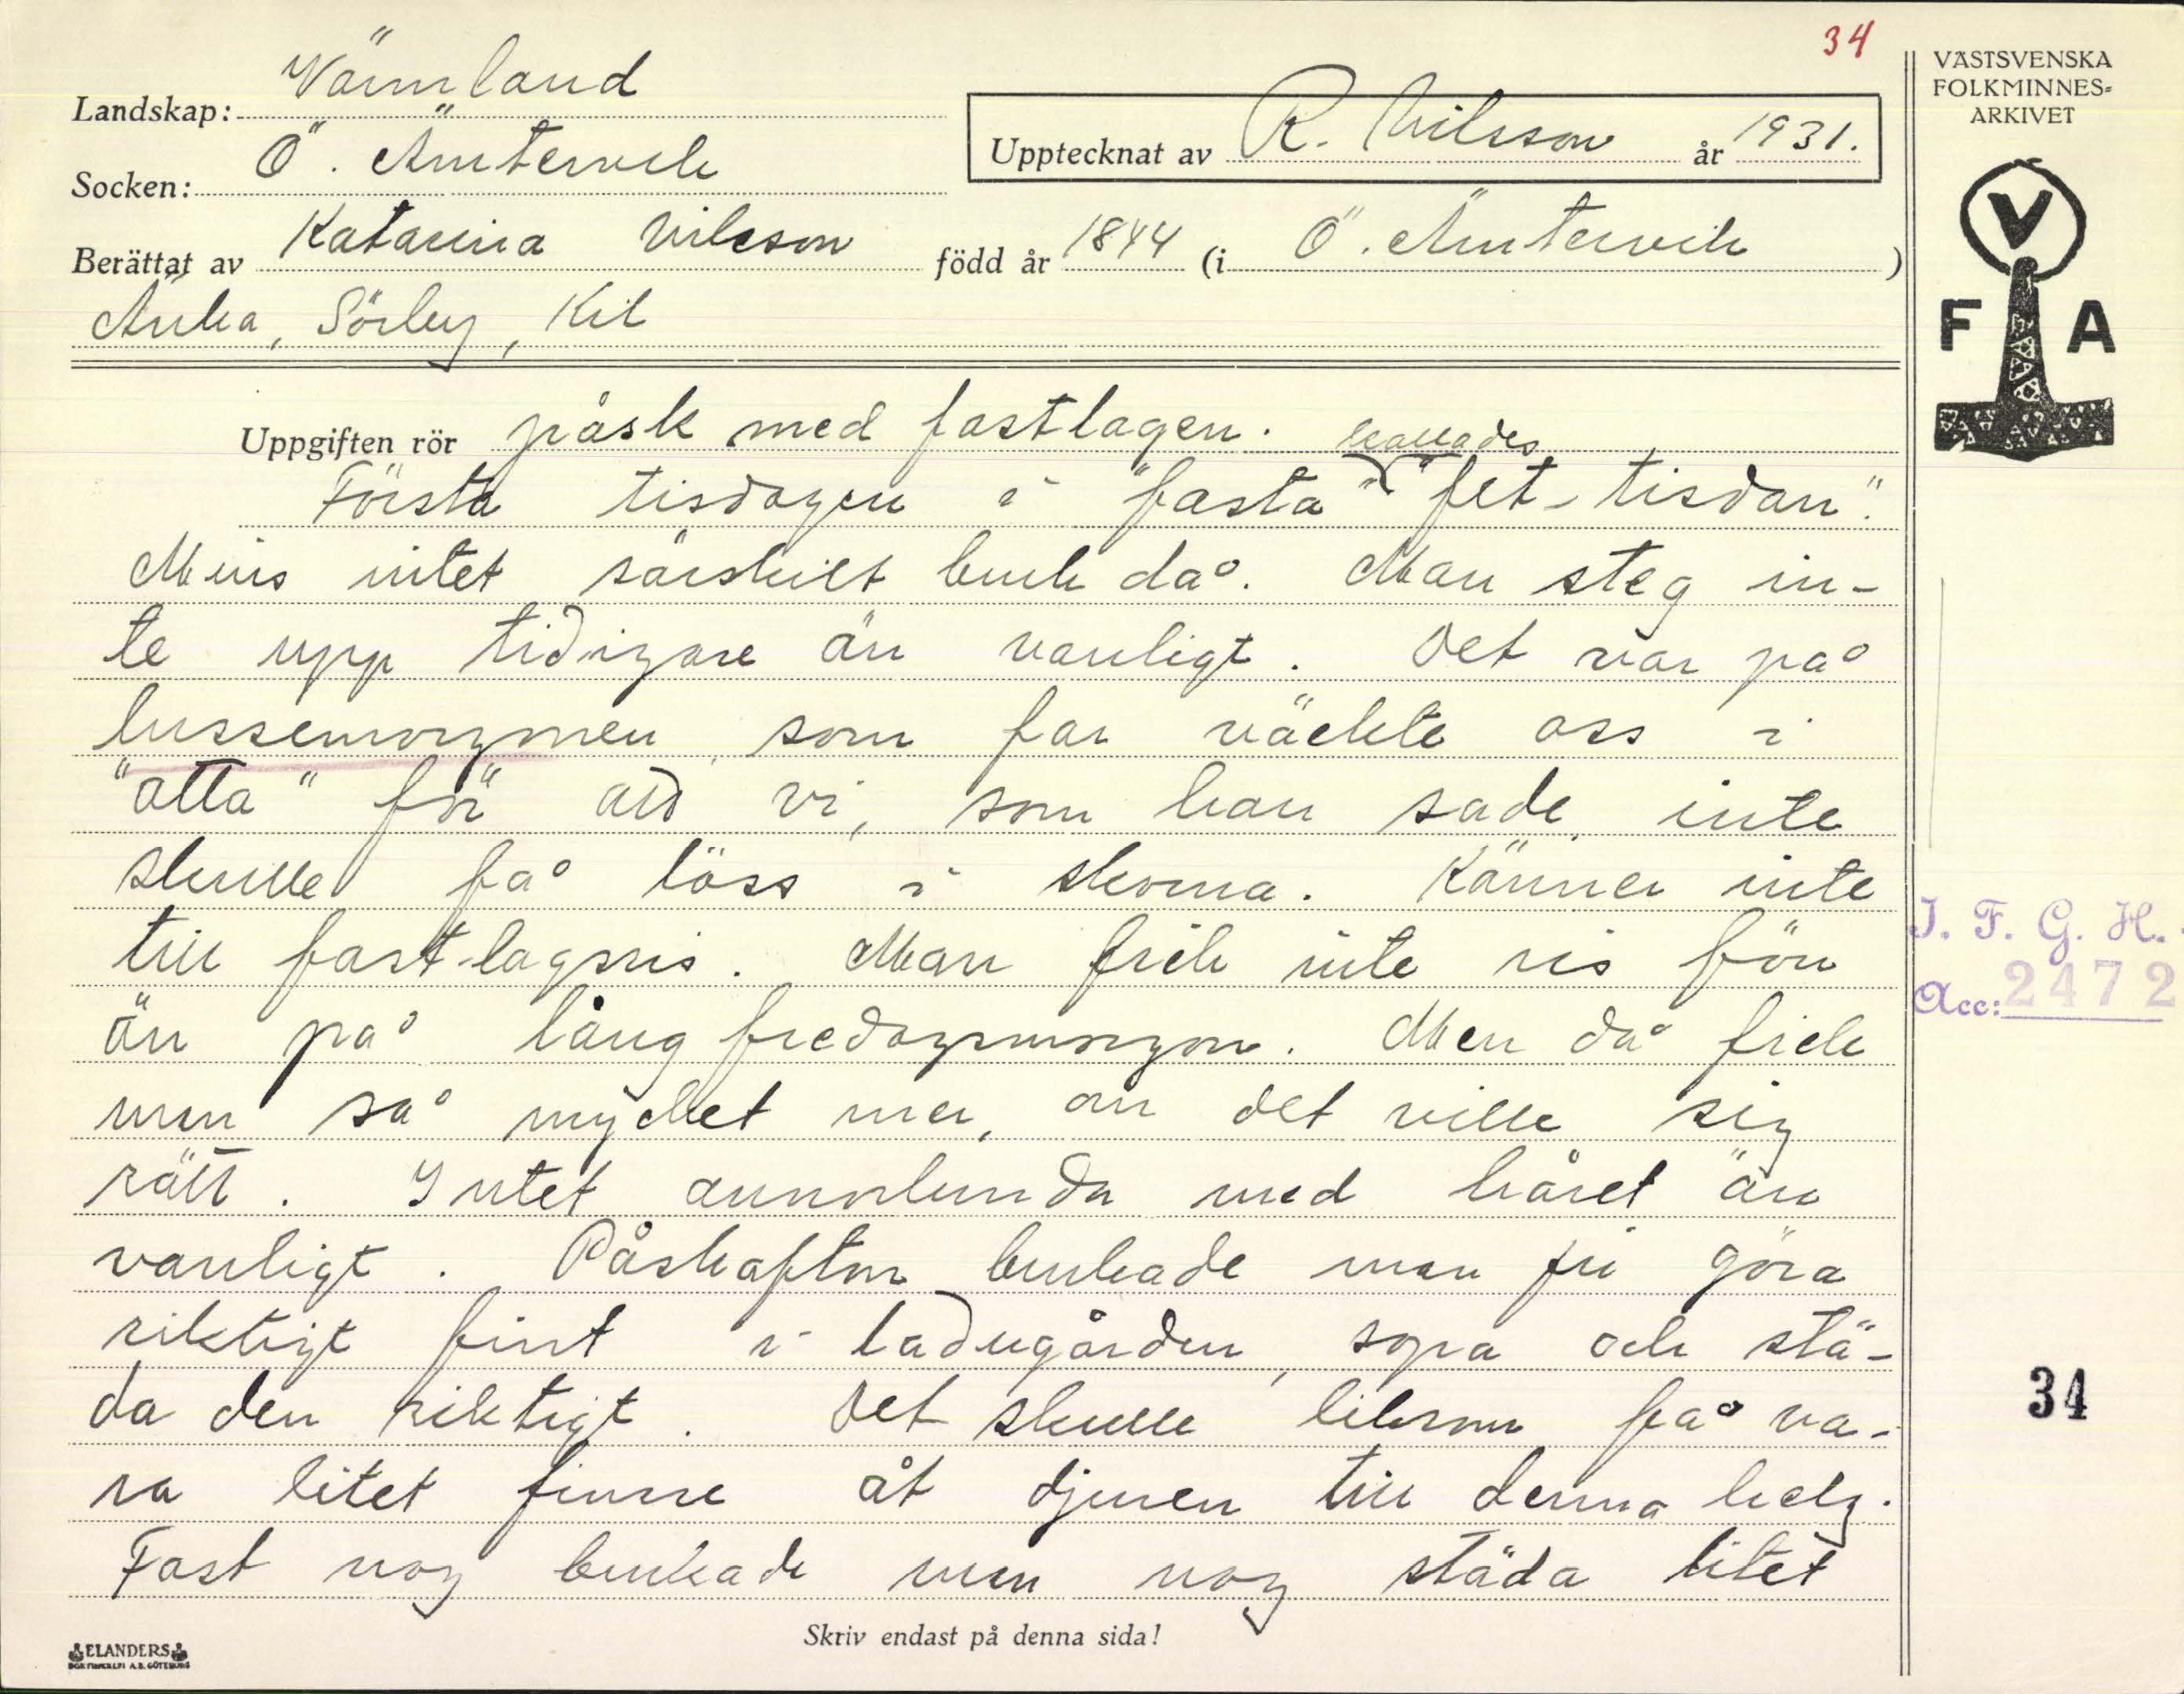 34
Landskap: Värmland
Socken: Ö. Ämtervik
Upptecknat av R. Nilsson år 1931.
Berättat av Katarina Nilsson född år 1844 (i Ö. Ämtervik)
Änka, Sörby, Kil
VÄSTSVENSKA
FOLKMINNES-
ARKIVET
V
F A
Uppgiften rör påsk med fastlagen.
Första tisdagen i "fasta" kallades "fet-tisdan".
Mins intet särskilt bruk då. Man steg in-
te upp tidigare än vanligt. Det var på
lussemorgonen, som far väckte oss i
"otta" för att vi, som han sade, inte
skulle få löss i skorna. Känner inte
till fast-lagsris. Man fick inte ris förr
än på långfredagsmorgon. Men då fick
man så mycket mer, om det ville sig
rätt. Intet annorlunda med håret än
vanligt. Påskafton brukade man ju göra
riktigt fint i ladugården, sopa och stä-
da den riktigt. Det skulle liksom få va-
ra litet finare åt djuren till denna helg.
Fast nog brukade man nog städa litet
I. F. G. H.
Acc: 2472
34
Skriv endast på denna sida!
ELANDERS
BOKTRYCKERI A.B. GÖTEBORG